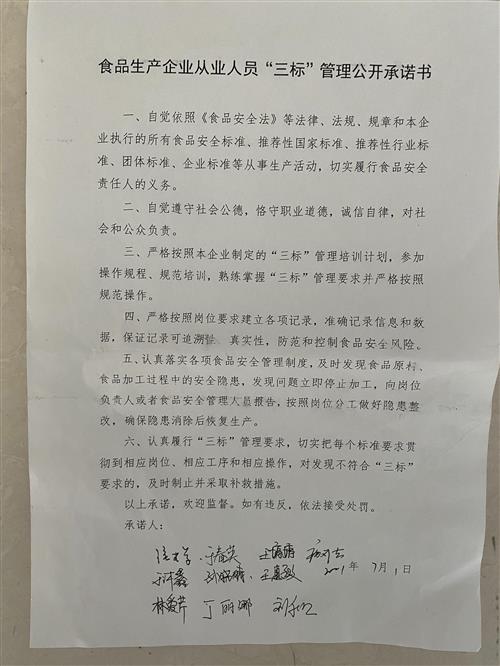 食品生产企业从业人员“三标”管理公开承诺书
一、自觉依照《食品安全法》等法律、法规、规章和本企
业执行的所有食品安全标准、推荐性国家标准、推荐性行业标
准、团体标准、企业标准等从事生产活动，切实履行食品安全
责任人的义务。
二、自觉遵守社会公德，恪守职业道德，诚信自律，对社
会和公众负责。
三、严格按照本企业制定的“三标”管理培训计划，参加
操作规程、规范培训，熟练掌握“三标”管理要求并严格按照
规范操作。
四、严格按照岗位要求建立各项记录，准确记录信息和数
据，保证记录可追溯性、真实性，防范和控制食品安全风险。
五、认真落实各项食品安全管理制度，及时发现食品原料、
食品加工过程中的安全隐患，发现问题立即停止加工，向岗位
负责人或者食品安全管理人员报告，按照岗位分工做好隐患整
改，确保隐患消除后恢复生产。
六、认真履行“三标”管理要求，切实把每个标准要求贯
彻到相应岗位、相应工序和相应操作，对发现不符合“三标”
要求的，及时制止并采取补救措施。
以上承诺，欢迎监督。如有违反，依法接受处罚。
承诺人：
于春英 王倩倩
2021年 7月1日
林爱芹 丁丽娜